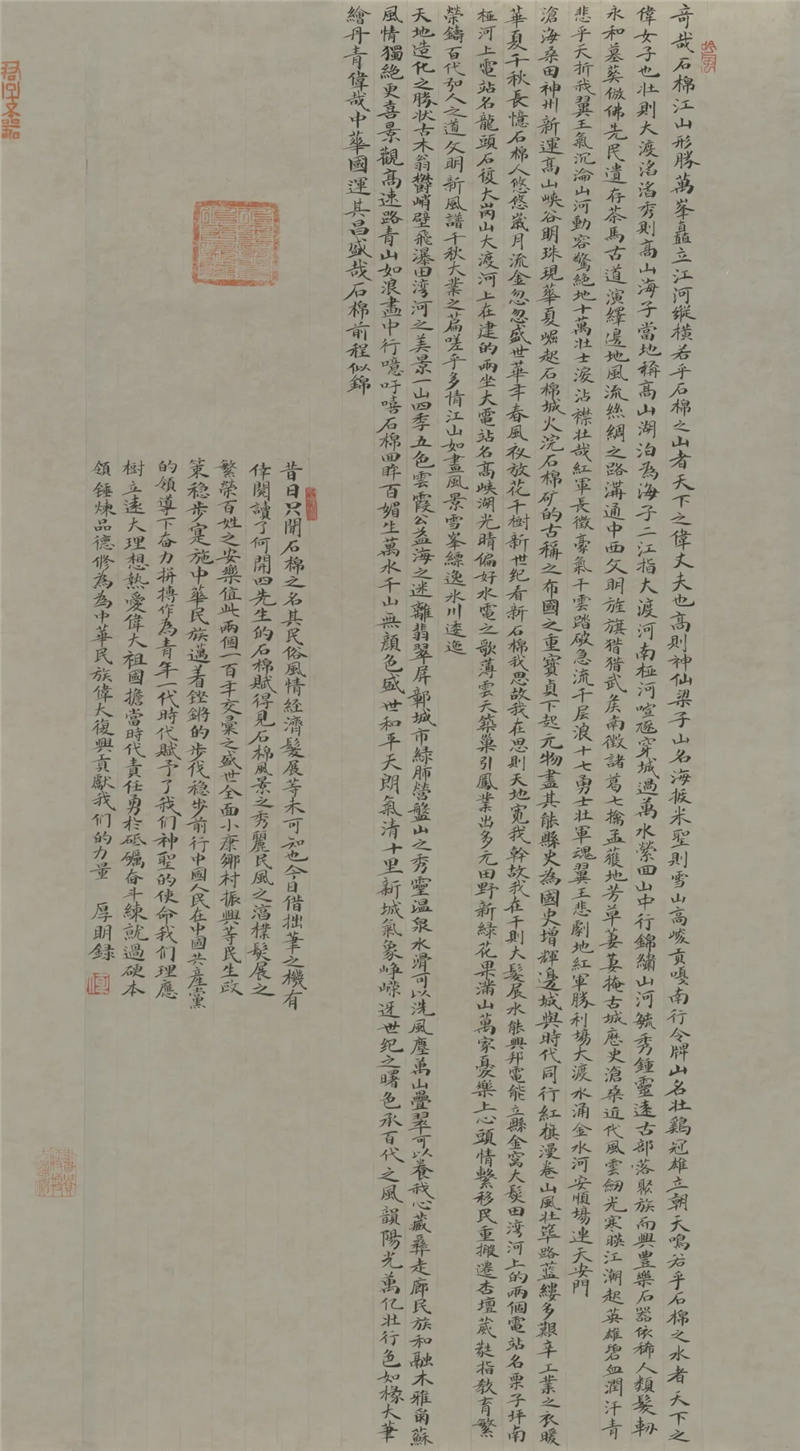 奇哉石棉江山形勝萬峯矗立江河縱橫若乎石棉之山者天下之偉丈夫也高則神仙梁子山名海拔米聖則雪山高峻貢嘎南行令牌山名壯鷄冠雄立朝天鳴若乎石棉之水者天下之
偉女子也壯則大渡滔滔秀則高山海子當地稱高山湖泊為海子二江指大渡河南桠河喧逐穿城過萬水縈四山中行錦繡山河毓秀鍾靈遠古部落聚族而興豐樂石器依稀人類髮軔
永和墓葬倣佛先民遺存茶馬古道演繹邊地風流絲綢之路溝通中西文明旌旗獵獵武矦南徵諸葛七擒孟獲地芳草萋萋掩古城歷史滄桑近代風雲劒光寒暎江潮起英雄碧血潤汗青
悲乎天折我翼王氣沉淪山河動容驚絕地十萬壯士淚沾襟壯哉紅軍長徵豪氣干雲踏破急流千层浪十七勇士壯軍魂翼王悲劇地紅軍勝利場大渡水涌金水河安順場連天安門
滄海桑田神州新運高山峽谷明珠現華夏崛起石棉城火浣石棉矿的古稱之布國之重寶貞下起元物盡其能縣史為國史增輝邊城與時代同行紅旗漫卷山風壯筚路蓝縷多艱辛工業之衣暖
華夏千秋長憶石棉人悠悠歲月流金忽忽盛世華年春風夜放花千樹新世纪看新石棉我思故我在思則天地寬我幹故我在干則大髮展水能興邦電能立縣金窝大髮田湾河上的兩個電站名栗子坪南
桠河上電站名龍頭石復大崗山大渡河上在建的兩坐大電站名高峽湖光晴偏好水電之歌薄雲天築巢引鳳業出多元田野新緑花果滿山萬家憂樂上心頭情繫移民重搬遷杏壇葳蕤指教育繁
榮鑄百代弘人之道文明新風譜千秋大業之萹嗟乎多情江山如畫風景雪峯縹逸氷川逶迤
天地造化之勝状古木翁欝峭壁飛瀑田湾河之美景一山四季五色雲霞公益海之迷離翡翠屏鄣城市緑肺營盤山之秀靈温泉水滑可以洗風塵萬山疊翠可以養我心藏彝走廊民族和融木雅爾蘇
風情獨絕更喜景觀高速路青山如浪畫中行噫吁嘻石棉回眸百媚生萬水千山無顔色盛世和平天朗氣清十里新城氣象峥嵘迓世纪之曙色承百代之風韻陽光萬亿壯行色如椽大筆
繪丹青偉哉中華國運其昌盛哉石棉前程似錦
昔日只聞石棉之名其民俗風情经濟髮展等未可知也今日借拙筆之機有
倖閱讀了何開四先生的石棉賦得見石棉風景之秀麗民風之湻樸髮展之
繁榮百姓之安樂值此兩個一百年交彙之盛世全面小康鄉村振興等民生政
策稳步寔施中華民族邁着鏗鏘的步伐稳步前行中國人民在中國共產黨
的領導下奋力拼搏作為青年一代時代賦予了我们神聖的使命我们理應
樹立遠大理想熱愛偉大祖國擔當時代責任勇於砥礪奋斗練就過硬本
領錘煉品德修為為中華民族偉大復興貢獻我们的力量　厚明録